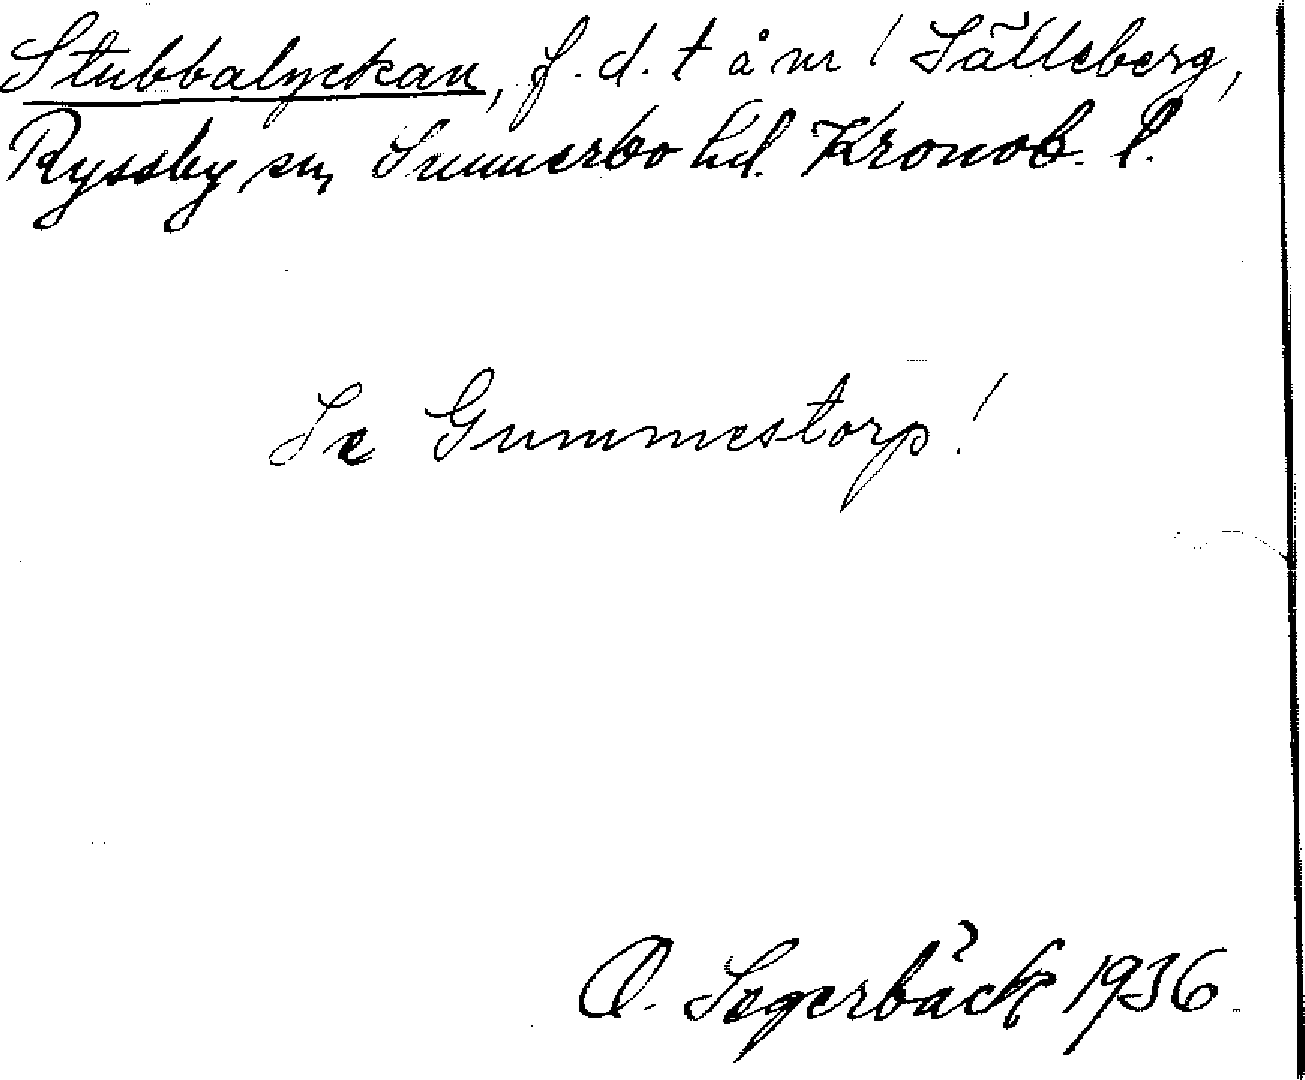 Stubbalyckan, f. d. t å nr 1 Sälleberg,
Ryssby sn, Sunnerbo hd. Kronob. l.
Se Gummestorp!
O. Segerbäck 1936